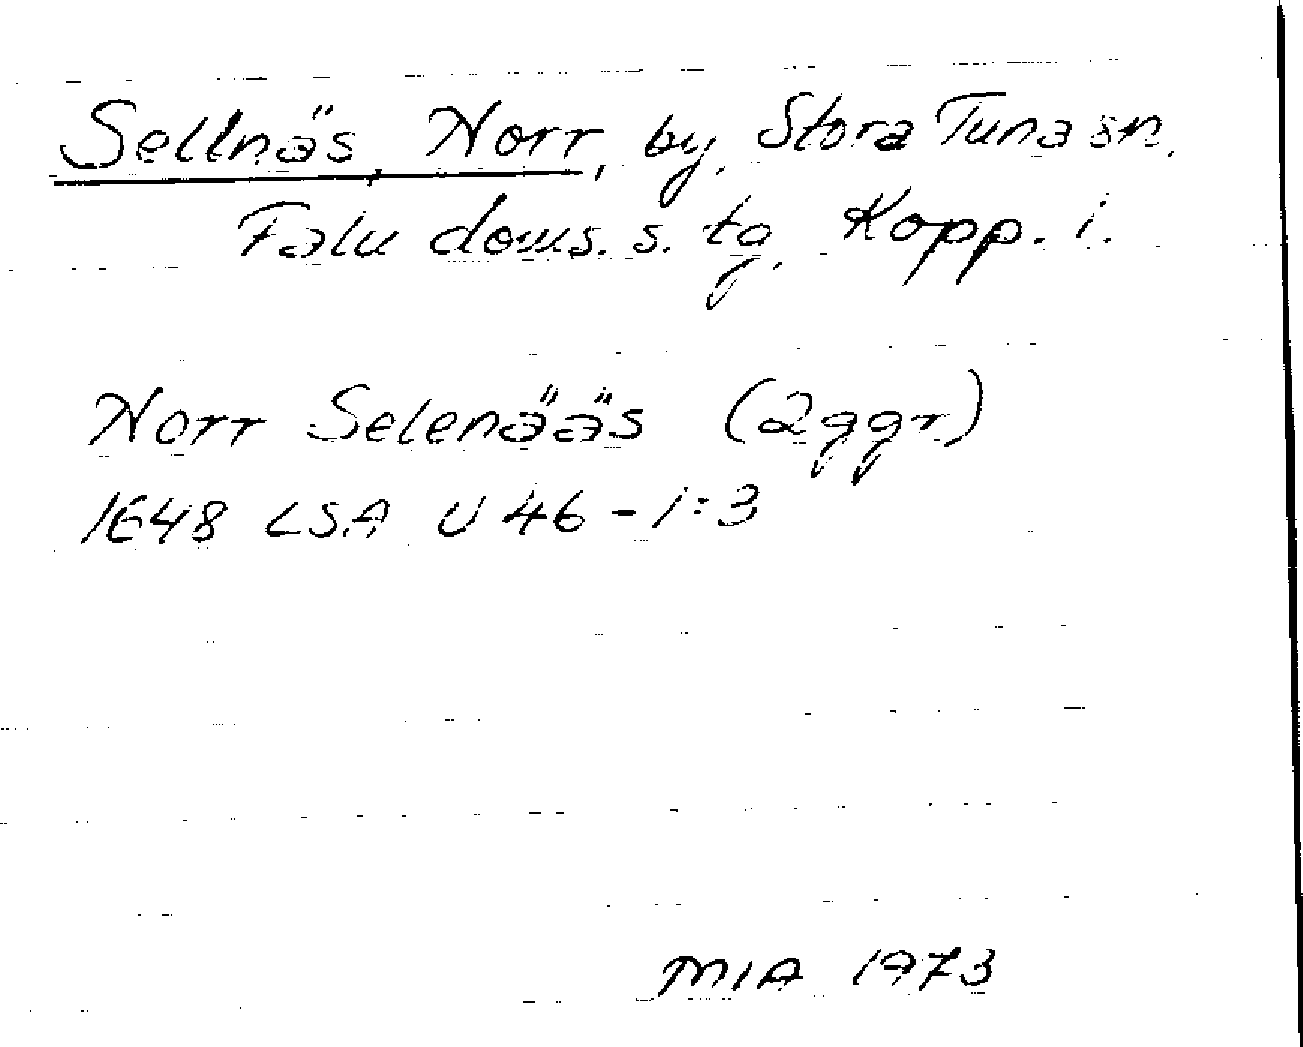 Sellnäs, Norr, by, Stora Tuna sn,
Falu doms. s. tg, Kopp. l.
Norr Selenääs (2 ggr)
1648 LSA U 46-1:3
MIA 1973